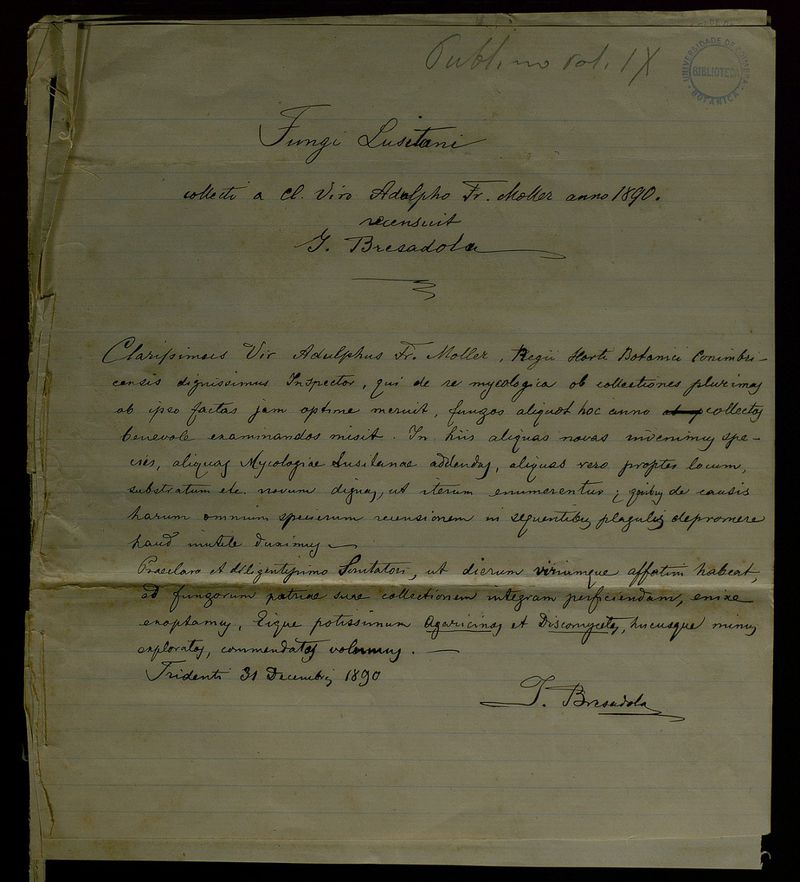 Publ. no vol. IX
UNIVERSIDADE DE COIMBRA
BIBLIOTECA
BOTANICA
Fungi Lusitani
collecti a cl. Viro Adolpho Fr. Moller anno 1890.
recensuit
J. Bresadola
Clarissimus Vir Adulphus Fr. Moller, Regii Horti Botanici Conimbri-
censis dignissimus Inspector, qui de re mycologica ob collectiones plurimas
ab ipso factas jam optime meruit, fungos aliquot hoc anno collectos
benevole examinandos misit. In hiis aliquas novas invenimus spe-
cies, aliquas Mycologiae Lusitanae addendas, aliquas vero propter locum,
substratum etc. novum dignas, ut iterum enumerentur; quibus de causis
harum omnium specierum recensionem in sequentibus plagulis depromere
haud inutile duximus
Praeclaro et diligentissimo Scrutatori, ut dierum viriumque affatim habeat,
ad fungorum patriae suae collectionem integram perficiendam, enixe
exoptamus, Eique potissimum Agaricinas et Discomycetes, hucusque minus
exploratos, commendatos volumus. —
Tridenti 31 Decembris 1890
J. Bresadola